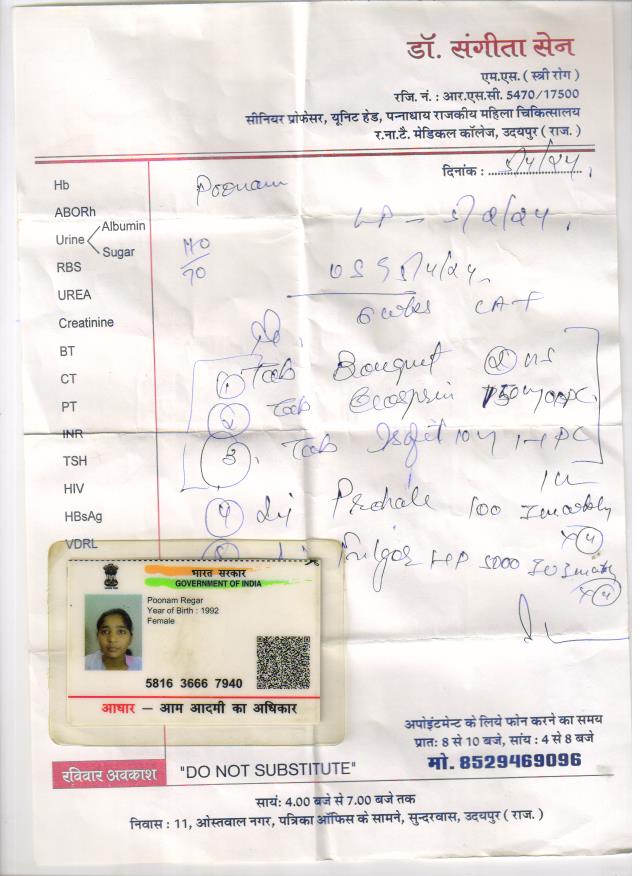 डॉ. संगीता सेन
एम.एस. ( स्त्री रोग )
रजि. नं. : आर.एस.सी. 5470/17500
सीनियर प्रोफेसर, यूनिट हेड, पन्नाधाय राजकीय महिला चिकित्सालय
र.ना.टै. मेडिकल कॉलेज, उदयपुर ( राज. )
दिनांक : 5/4/24
Hb
Poonam
ABORh
LP - 5/2/24
Urine Albumin
Sugar
110/70
RBS
USG 5/4/24
UREA
6 wks
Creatinine
BT
① Tab Bouquet
CT
② Tab Ecosprin 150
PT
INR
3. Tab 10
TSH
HIV
④ Inj 100
HBsAg
VDRL
HP 5000 IU
भारत सरकार
GOVERNMENT OF INDIA
Poonam Regar
Year of Birth : 1992
Female
5816 3666 7940
आधार – आम आदमी का अधिकार
अपोइंटमेन्ट के लिये फोन करने का समय
प्रातः 8 से 10 बजे, सांय : 4 से 8 बजे
मो. 8529469096
रविवार अवकाश "DO NOT SUBSTITUTE"
सायं: 4.00 बजे से 7.00 बजे तक
निवास : 11, ओस्तवाल नगर, पत्रिका ऑफिस के सामने, सुन्दरवास, उदयपुर ( राज. )